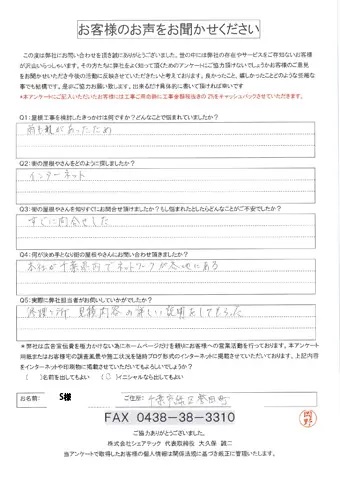 お客様のお声をお聞かせください
この度は弊社にお問い合わせを頂き誠にありがとうございました。世の中には弊社の存在やサービスをご存知ないお客様
が沢山いらっしゃいます。その方たちに弊社をよく知って頂くためのアンケートにご協力頂けないでしょうか
お客様のご意見
をお聞かせいただき今後の活動に反映させていただきたいと考えております。良かったこと、嬉しかったことどのような些細な
事でも結構です。是非ご協力お願い致します。出来るだけ具体的に書いて頂ければ幸いです
*本アンケートにご記入いただいたお客様には工事ご成約時に工事金額税抜きの2%をキャッシュバックさせていただきます。
Q1:屋根工事を検討したきっかけは何ですか?どんなことで悩まれていましたか?
雨もれがあったため
Q2:街の屋根やさんをどのように探しましたか?
インターネット
Q3:街の屋根やさんを知りすぐにお問合せ頂けましたか?もし悩まれたとしたらどんなことがご不安でしたか?
すぐに問合せした
Q4:何が決め手となり街の屋根やさんにお問い合わせ頂きましたか?
本社が千葉県内でネットワークが各地にある
Q5:実際に弊社担当者がお伺いしていかがでしたか?
修理ヶ所、見積内容の詳しい説明をしてもらった
*弊社は広告宣伝費を極力かけない為にホームページだけを頼りにお客様への営業活動を行っております。本アンケート
用紙またはお客様宅の調査風景や施工状況を随時ブログ形式のインターネットに掲載させていただいております。上記内容
をインターネットや印刷物に掲載させていただいてもよろしいでしょうか?
( )名前を出してもよい (○)イニシャルなら出してもよい
お名前: S様 ご住所: 千葉市緑区誉田町
FAX 0438-38-3310
ご協力ありがとうございました。
株式会社シェアテック 代表取締役 大久保 誠二
当アンケートで取得したお客様の個人情報は関係法規に基づき厳正に管理いたします。